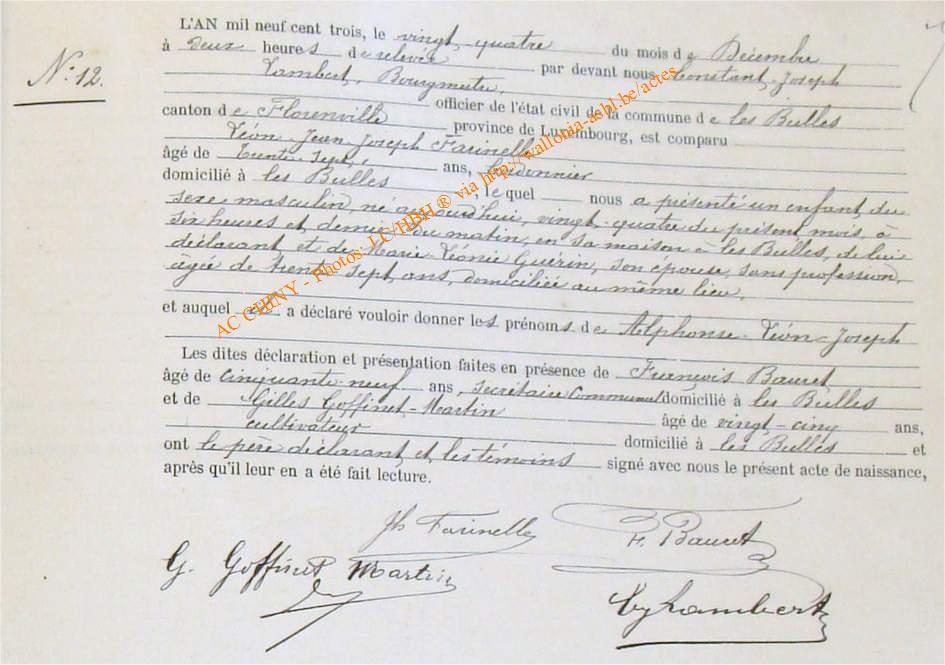 L'AN mil neuf cent trois, le vingt-quatre du mois de Décembre
N° 12.
à deux heures de relevée par devant nous Constant-Joseph
Lambert, Bourgmestre,
officier de l'état civil de la commune de les Bulles
canton de Florenville province de Luxembourg, est comparu
Léon-Jean-Joseph Farinelle
âgé de trente-sept ans, Cordonnier
domicilié à les Bulles, lequel nous a présenté un enfant du
sexe masculin, né aujourd'hui, vingt-quatre du présent mois, à
six heures et demie du matin, en sa maison à les Bulles, de lui
déclarant et de Marie-Léonie Guérin, son épouse, sans profession,
âgée de trente-sept ans, domiciliée au même lieu,
et auquel a déclaré vouloir donner les prénoms de Alphonse-Léon-Joseph
Les dites déclaration et présentation faites en présence de François Bauret
âgé de cinquante-neuf ans, secrétaire Communal domicilié à les Bulles
et de Gilles Goffinet-Martin âgé de vingt-cinq ans,
cultivateur domicilié à les Bulles et
ont le père déclarant et les témoins signé avec nous le présent acte de naissance,
après qu'il leur en a été fait lecture.
Jh Farinelle F. Bauret
G. Goffinet Martin
Lambert
AC CHINY - Photos: LC/HBH ® via http://wallonia-asbl.be/actes